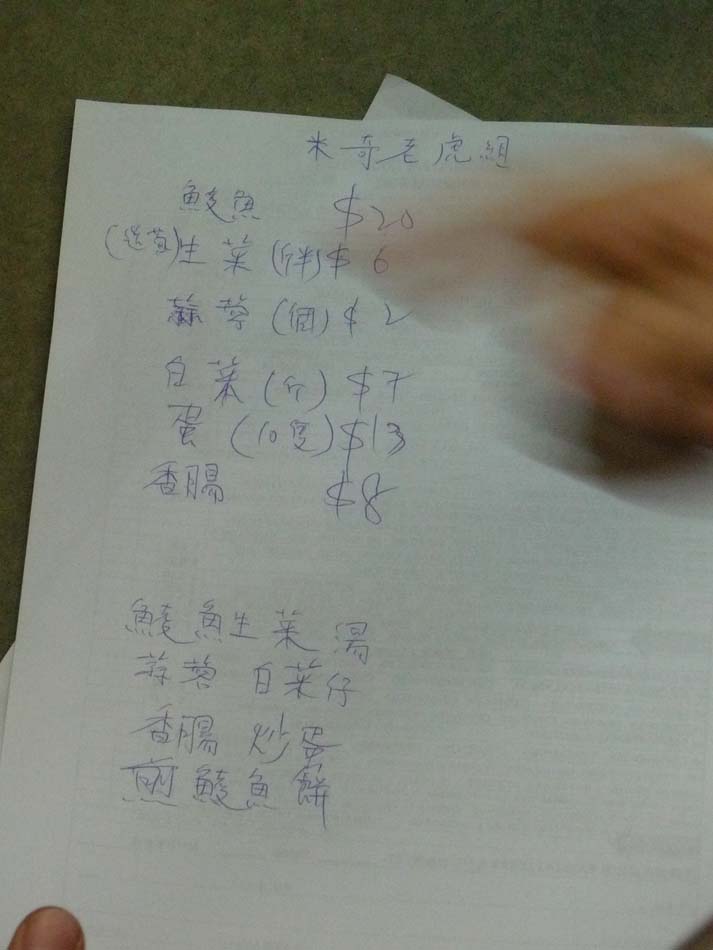 米奇老虎組
鯪魚 $20
(送葱)生菜(斤半)$6
蒜蓉(個)$2
白菜(斤)$7
蛋(10隻)$13
香腸 $8
鯪魚生菜湯
蒜蓉白菜仔
香腸炒蛋
煎鯪魚餅